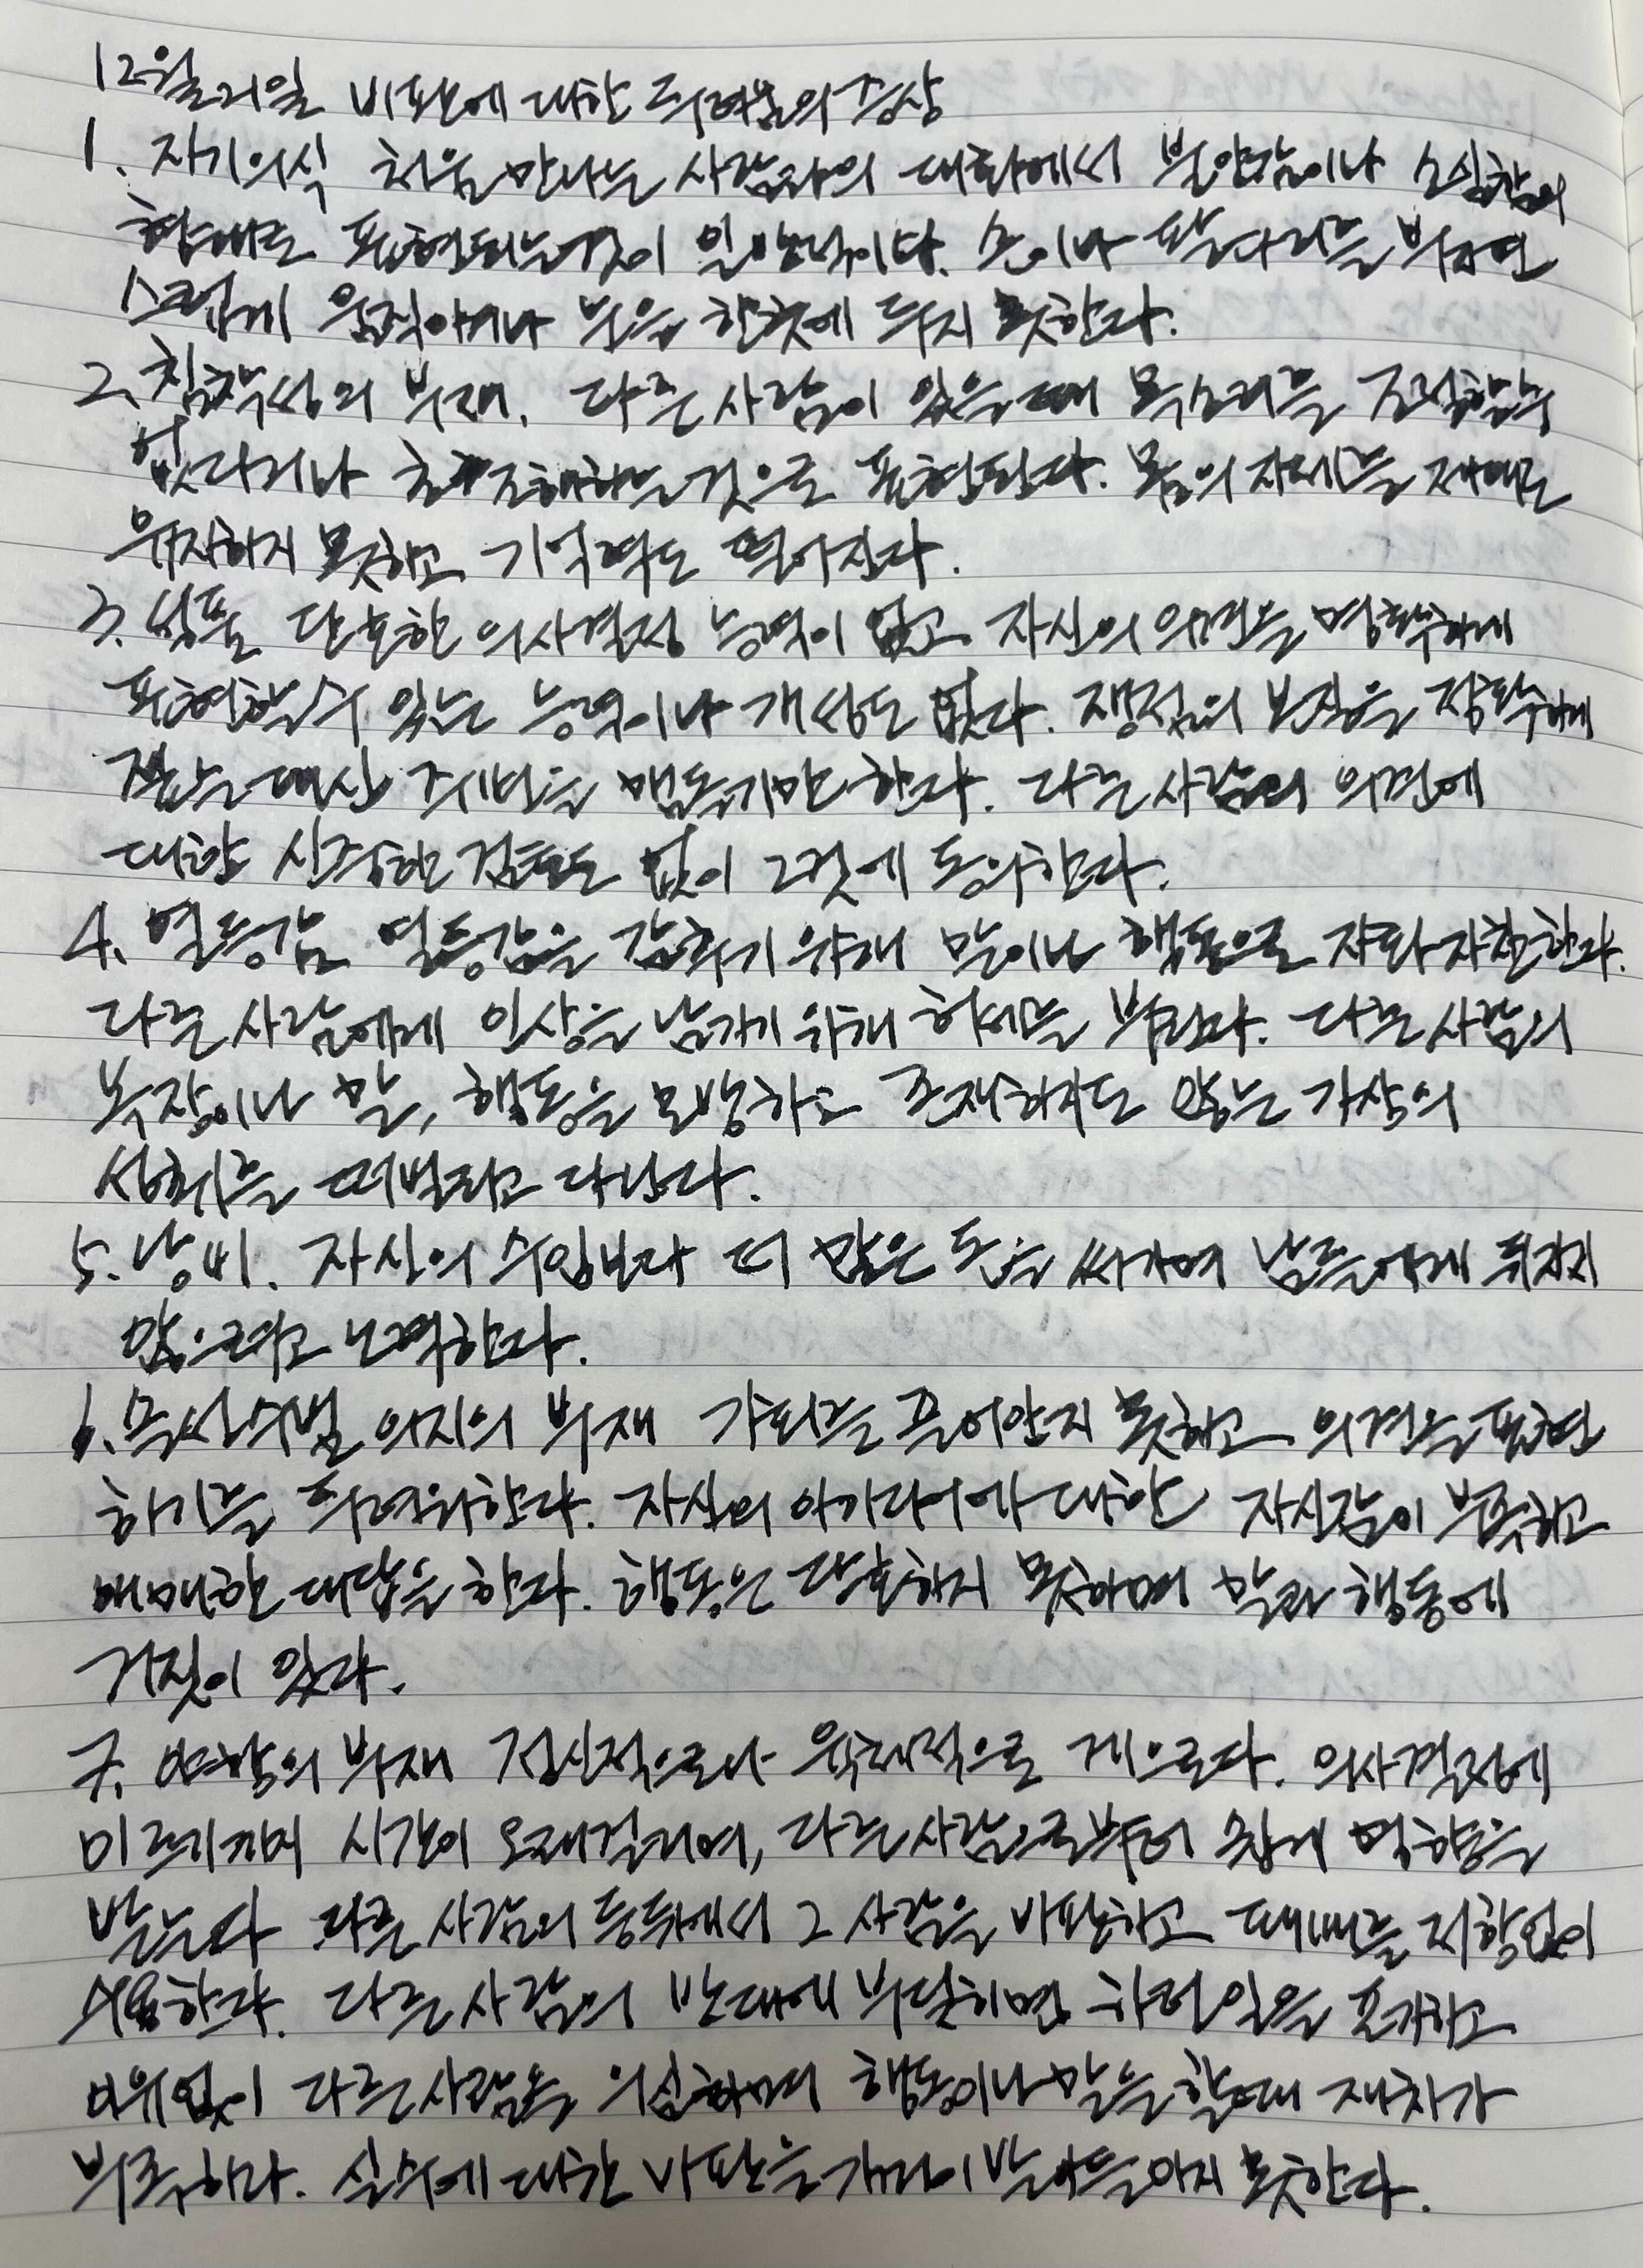 12월21일 비판에 대한 두려움의 증상
1. 자기의식 처음 만나는 사람과의 대화에서 불안감이나 소심함의
형태로 표현되는것이 일반적이다. 손이나 팔다리를 부자연
스럽게 움직이거나 눈을 한곳에 두지 못한다.
2. 침착성의 부재. 다른 사람이 있을때 목소리를 조절할수
없다거나 초조해하는것으로 표현된다. 몸의 자세를 제대로
유지하지 못하고 기억력도 떨어진다.
3. 성품 단호한 의사결정 능력이 없고 자신의 의견을 명확하게
표현할수 있는 능력이나 개성도 없다. 쟁점의 본질을 정확하게
짚는대신 주변을 맴돌기만 한다. 다른사람의 의견에
대한 신중한 검토도 없이 그것에 동의한다.
4. 열등감 열등감을 감추기 위해 말이나 행동으로 자화자찬한다.
다른 사람에게 인상을 남기기 위해 허세를 부린다. 다른 사람의
복장이나 말, 행동을 모방하고 존재하지도 않는 가상의
성취를 떠벌리고 다닌다.
5. 낭비. 자신의 수입보다 더 많은 돈을 써가며 남들에게 뒤지지
않으려고 노력한다.
6. 솔선수범 의지의 부재 기회를 끌어안지 못하고 의견을 표현
하기를 두려워한다. 자신의 아이디어에 대한 자신감이 부족하고
애매한 대답을 한다. 행동은 단호하지 못하며 말과 행동에
거짓이 있다.
7. 야망의 부재 정신적으로나 육체적으로 게으르다. 의사결정에
이르기까지 시간이 오래걸리며, 다른사람으로부터 쉽게 영향을
받는다 다른 사람의 등뒤에서 그 사람을 비판하고 대체를 지향없이
수용한다. 다른 사람의 반대에 부딪히면 하던 일을 포기하고
이유없이 다른사람을 의심하며 행동이나 말을 할때 재치가
부족하다. 실수에 대한 비판을 기꺼이 받아들이지 못한다.